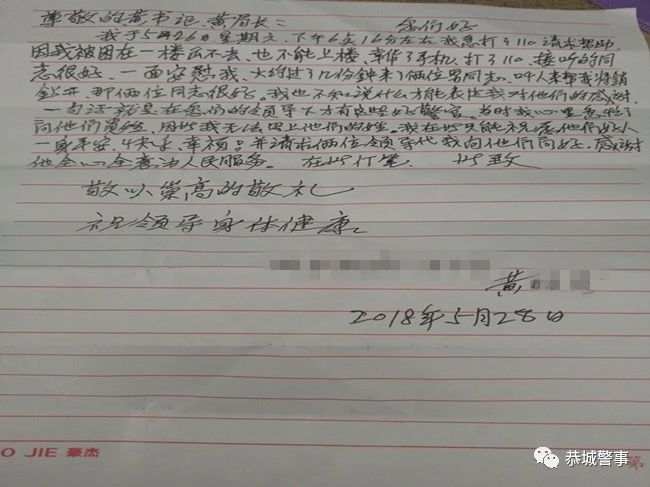 尊敬的黄书记,黄局长: 您们好
我于5月26日星期六下午6点16分左右我急打了110请求帮助
因我被困在一楼出不去,也不能上楼,幸带了手机,打了110,接听的同
志很好,一面安慰我,大约过了几分钟来了两位男同志,叫人来帮我将锁
钻开,那两位同志很好。我也不知说什么才能表达我对他们的感谢
一句话就是在您们的领导下才有这些好警官。当时我心里急忘了
问他们贵姓,因此我无法写上他们的姓。我在此只能祝愿他们好人
一身平安,幸福,并请求两位领导代我向他们问好,感谢
他全心全意为人民服务。 在此打笔, 此致
敬以崇高的敬礼
祝领导身体健康
黄
2018年5月28日
O JIE 豪杰
第
恭城警事